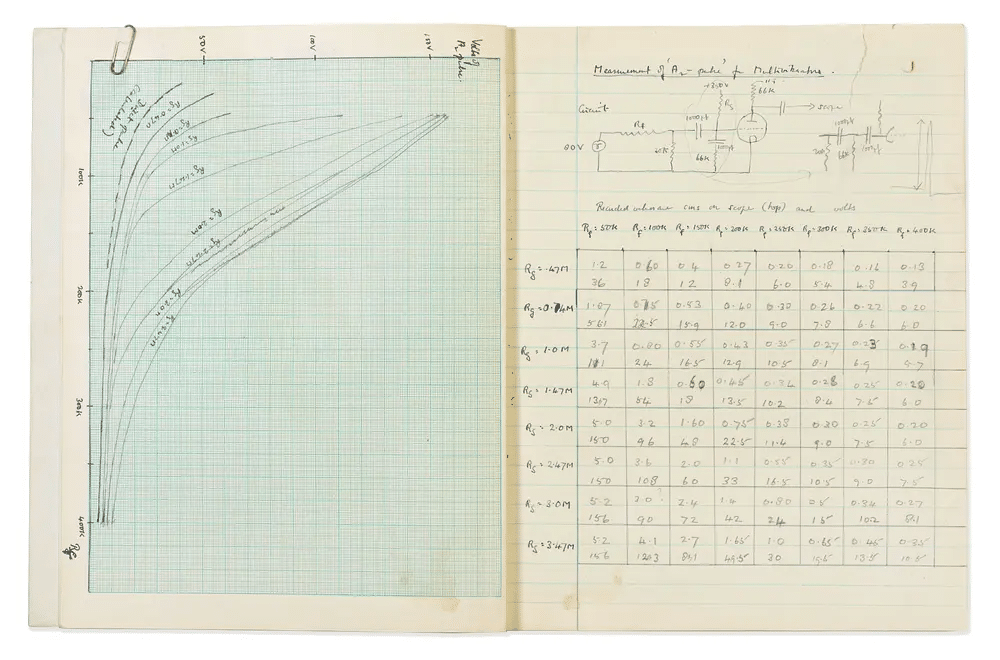 50V
100V
150V
Volts of
A₂ pulse.
Input Pulse
(calculated)
Rg=0.47Ω
Rg=1.0M
Rg=1.47M
Rg=2.0M
Rg=2.47M
Rg=3.0M
Rg=3.47M
100K
200K
300K
400K
Rf
Measurement of 'A₂ - pulse' for Multivibrators.
Circuit
+250v
Rg
66K
scope
Rf
80V
66K
Recorded cms on scope (top) and volts
Rf=50K Rf=100K Rf=150K Rf=200K Rf=250K Rf=300K Rf=350K Rf=400K
Rg=.47M 1.2 0.60 0.4 0.27 0.20 0.18 0.16 0.13
36 18 12 8.1 6.0 5.4 4.8 3.9
Rg=0.74M 1.87 0.75 0.53 0.40 0.30 0.26 0.22 0.20
56.1 22.5 15.9 12.0 9.0 7.8 6.6 6.0
Rg=1.0M 3.7 0.80 0.55 0.43 0.35 0.27 0.23 0.19
111 24 16.5 12.9 10.5 8.1 6.9 5.7
Rg=1.47M 4.9 1.8 0.60 0.45 0.34 0.28 0.25 0.20
147 54 18 13.5 10.2 8.4 7.5 6.0
Rg=2.0M 5.0 3.2 1.60 0.75 0.38 0.30 0.25 0.20
150 96 48 22.5 11.4 9.0 7.5 6.0
Rg=2.47M 5.0 3.6 2.0 1.1 0.55 0.35 0.30 0.25
150 108 60 33 16.5 10.5 9.0 7.5
Rg=3.0M 5.2 3.0? 2.4 1.4 0.80 0.5 0.34 0.27
156 90 72 42 24 15 10.2 8.1
Rg=3.47M 5.2 4.1 2.7 1.65 1.0 0.65 0.45 0.35
156 123 81 49.5 30 19.5 13.5 10.5